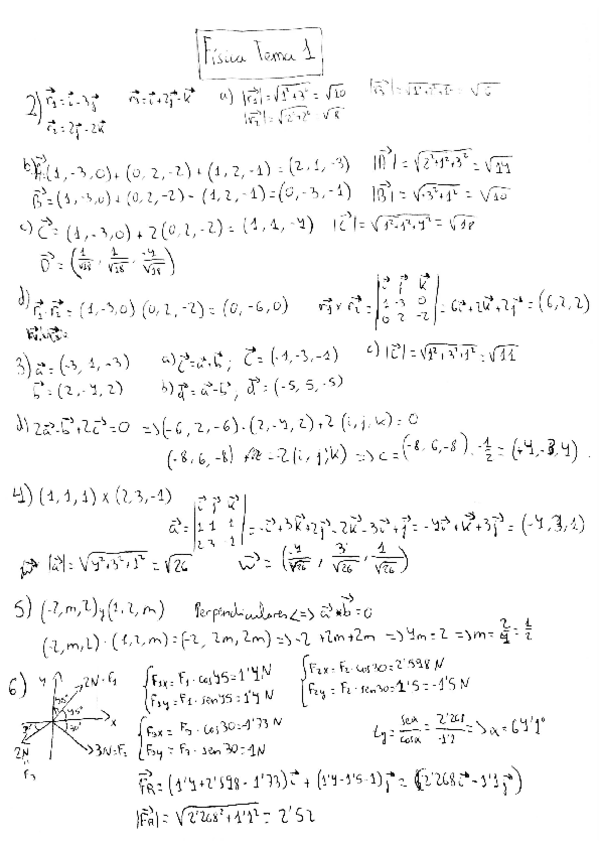 Física Tema 1
2) r₁ = i - 3j   r₃ = i + 2j - k   a) |r₁| = √1²+3² = √10
r₂ = 2j - 2k   |r₂| = √2²+2² = √8
b) A = (1, -3, 0) + (0, 2, -2) + (1, 2, -1) = (2, 1, -3)   |A| = √2²+1²+3² = √14
B = (1, -3, 0) + (0, 2, -2) - (1, 2, -1) = (0, -3, -1)   |B| = √-3²+1² = √10
c) C = (1, -3, 0) + 2(0, 2, -2) = (1, 1, -4)   |C| = √1²+1²+4² = √18
D = (1/√18, 1/√18, -4/√18)
d) r₁ · r₂ = (1, -3, 0) (0, 2, -2) = (0, -6, 0)   r₁ x r₂ = |i j k; 1 -3 0; 0 2 -2| = 6i + 2k + 2j = (6, 2, 2)
3) a = (-3, 1, -3)   a) c = a + b ; c = (-1, -3, -1)   c) |c| = √1²+3²+1² = √11
b = (2, -4, 2)   b) d = a - b ; d = (-5, 5, -5)
d) 2a - b + 2c = 0 => (-6, 2, -6) - (2, -4, 2) + 2(i, j, k) = 0
(-8, 6, -8) = -2(i, j, k) => c = (-8, 6, -8) · -1/2 = (+4, -3, 4)
4) (1, 1, 1) x (2, 3, -1)
a = |i j k; 1 1 1; 2 3 -1| = -i + 3k + 2j - 2k - 3i + j = -4i + k + 3j = (-4, 3, 1)
|a| = √4²+3²+1² = √26   w = (-4/√26, 3/√26, 1/√26)
5) (-2, m, 2) y (1, 2, m)   Perpendiculares <=> a * b = 0
(-2, m, 2) · (1, 2, m) = (-2, 2m, 2m) => -2 + 2m + 2m => 4m = 2 => m = 2/4 = 1/2
6) y   2N = F₁   x   3N = F₂   2N = F₃
F₁x = F₁ · cos 45 = 1'4 N   F₂x = F₂ · cos 30 = 2'598 N
F₁y = F₁ · sen 45 = 1'4 N   F₂y = F₂ · sen 30 = 1'5 = -1'5 N
F₃x = F₃ · cos 30 = -1'73 N   tg = sen α/cos α = 2'268/-1'1 => α = 64'1º
F₃y = F₃ · sen 30 = 1 N
F_R = (1'4 + 2'598 - 1'73)i + (1'4 - 1'5 - 1)j = (2'268i - 1'1j)
|F_R| = √2'268² + 1'1² = 2'52